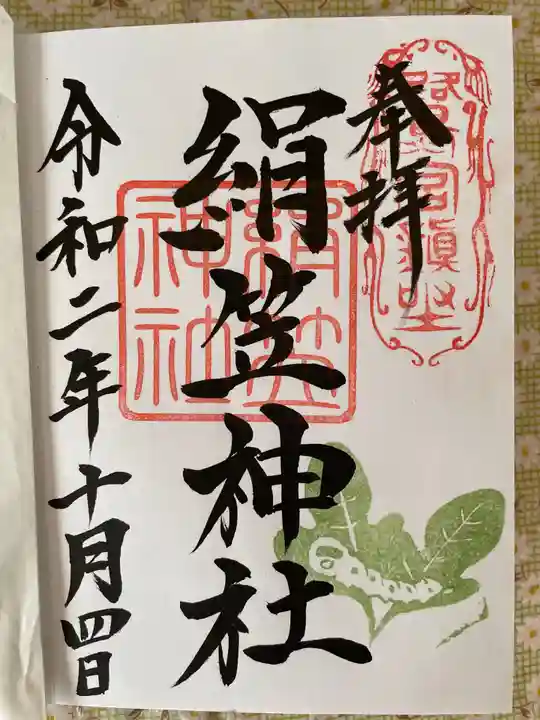 奉拝
絹笠神社
絹笠
神社
令和二年十月四日